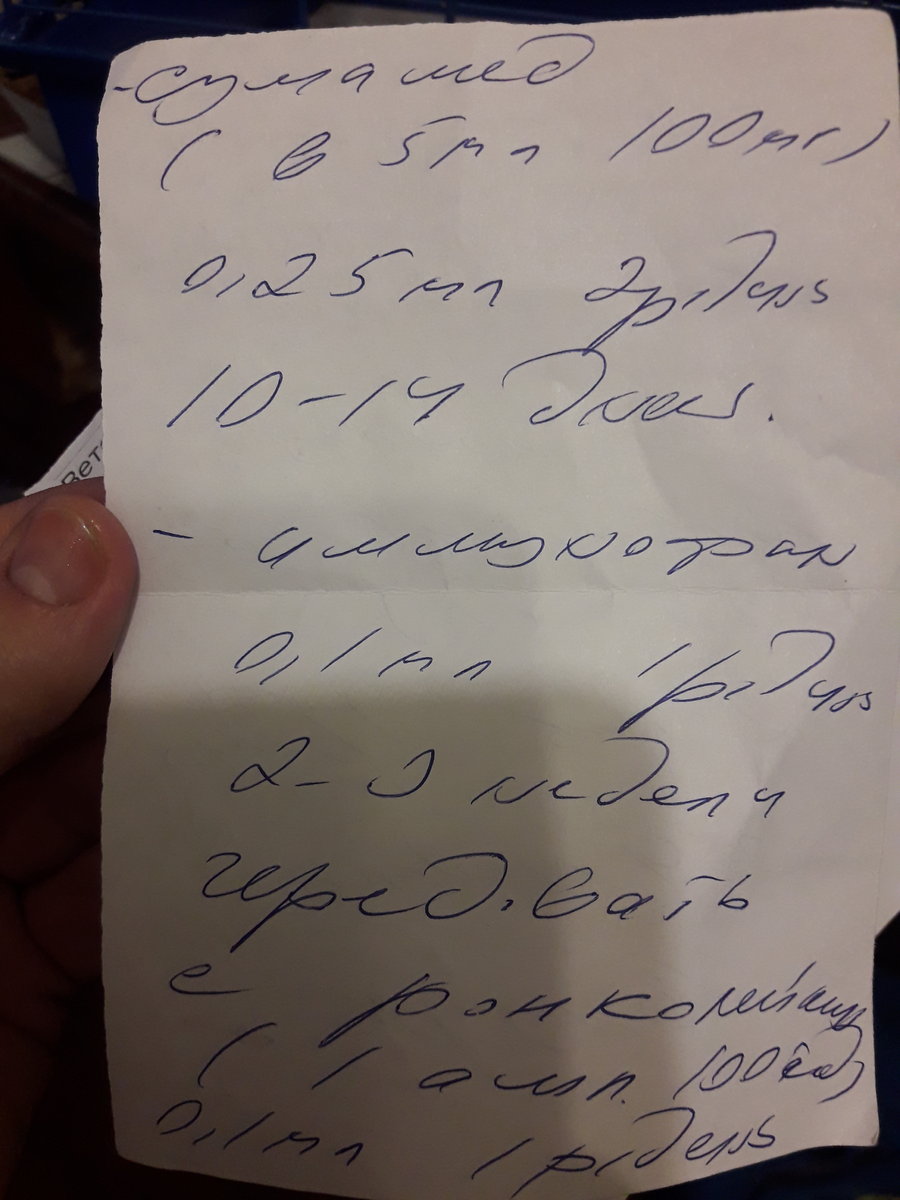 - сумамед
( в 5 мл 100 мг)
0,25 мл 2р.день
10-14 дней.
- иммунофан
0,1 мл 1р.день
2-3 недели
черед.вать
с ронколейкин
( 1 амп. 100 ед)
0,1 мл 1 р.день
Вет